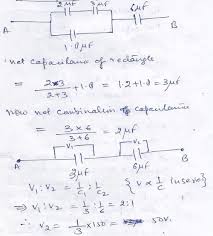 2μf 3μf 6μf
A B
1.8μf
net capacitance of rectangle
= 2×3 / 2+3 + 1.8 = 1.2+1.8 = 3μf
Now net combination of capacitance
= 3×6 / 3+6 = 2μf
V₁ V₂
A B
3μf 6μf
V₁ : V₂ = 1/C₁ : 1/C₂ { V ∝ 1/C (series)
⇒ V₁ : V₂ = 1/3 : 1/6 = 2:1
∴ V₂ = 1/3 × 150 = 50V.